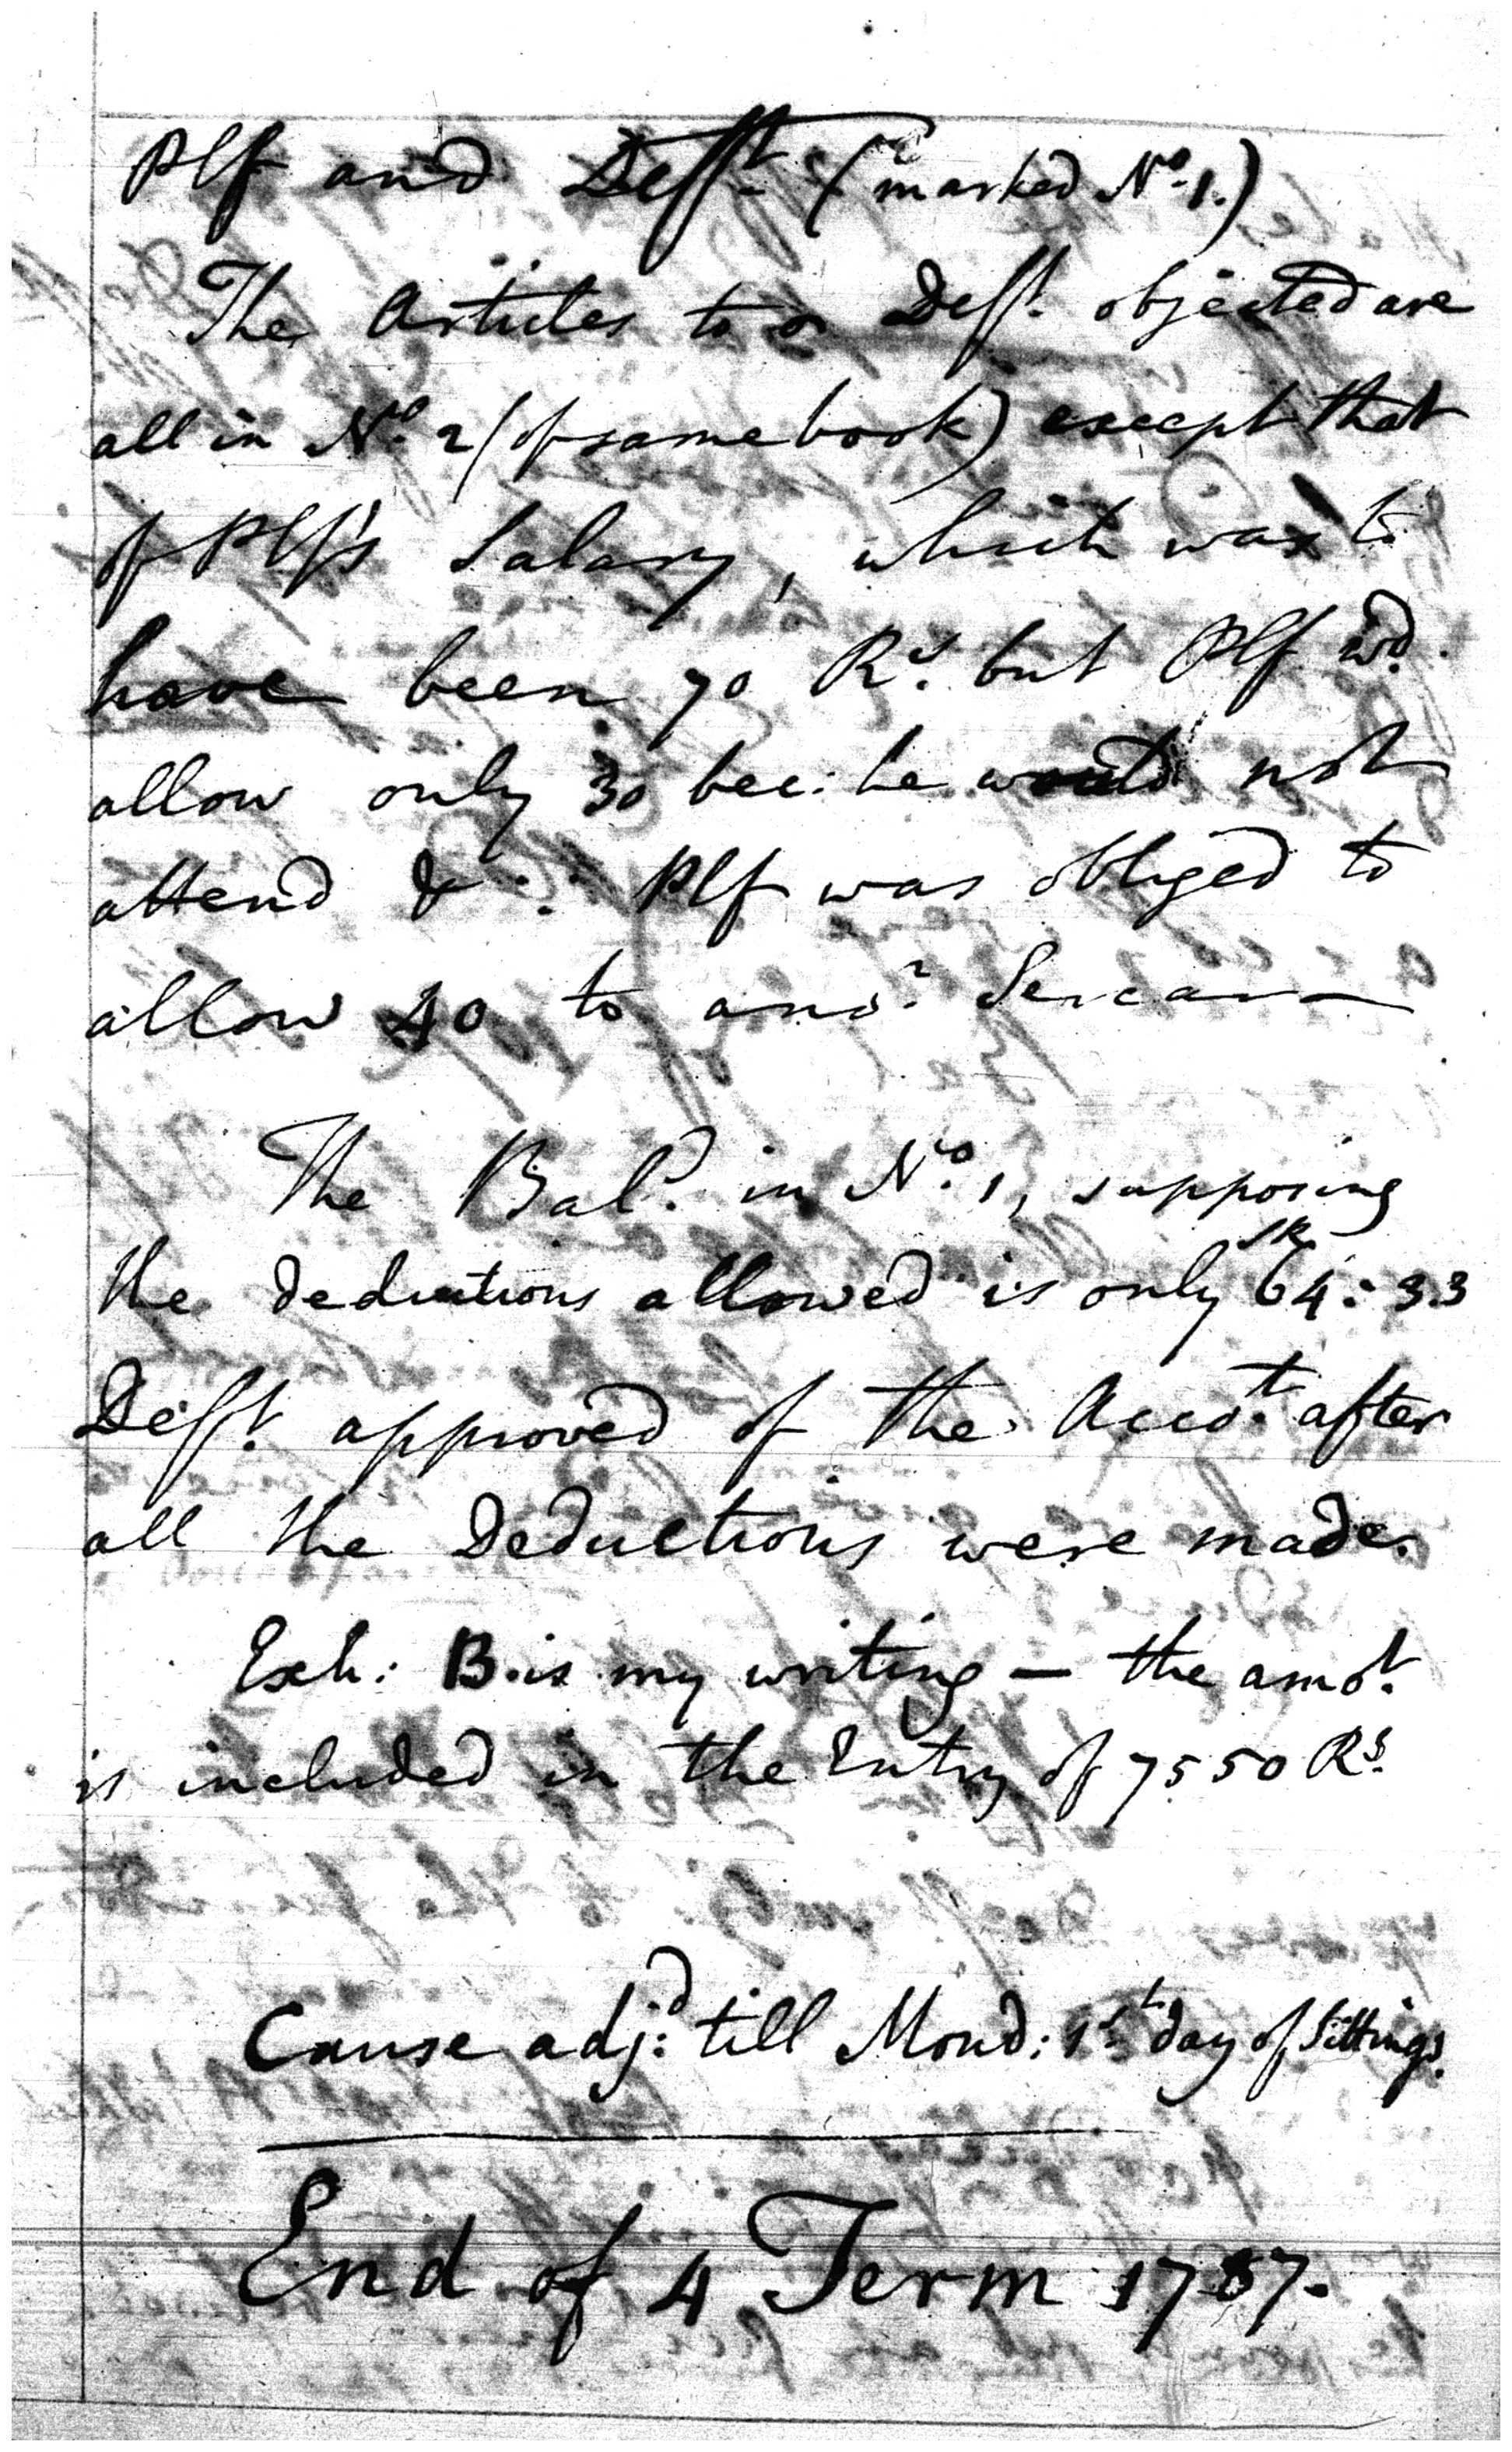 Plf and Defft. (marked No. 1.)
The Articles to Defft. objected are
all in No. 2 (of same book) except that
of Plf's Salary, which was to
have been 70 Rs. but Plf wd.
allow only 30 bec: he would not
attend & Plf was obliged to
allow 40 to anor. Sircar —
The Bal. in No. 1, supposing
the deductions allowed is only SR 64: 3.3
Defft. approved of the Accot. after
all the Deductions were made.
Exh: B. is my writing — the amot.
is included in the Entry of 7550 Rs.
Cause adjd: till Mond: 1st day of Sittings.
End of 4 Term 1787.